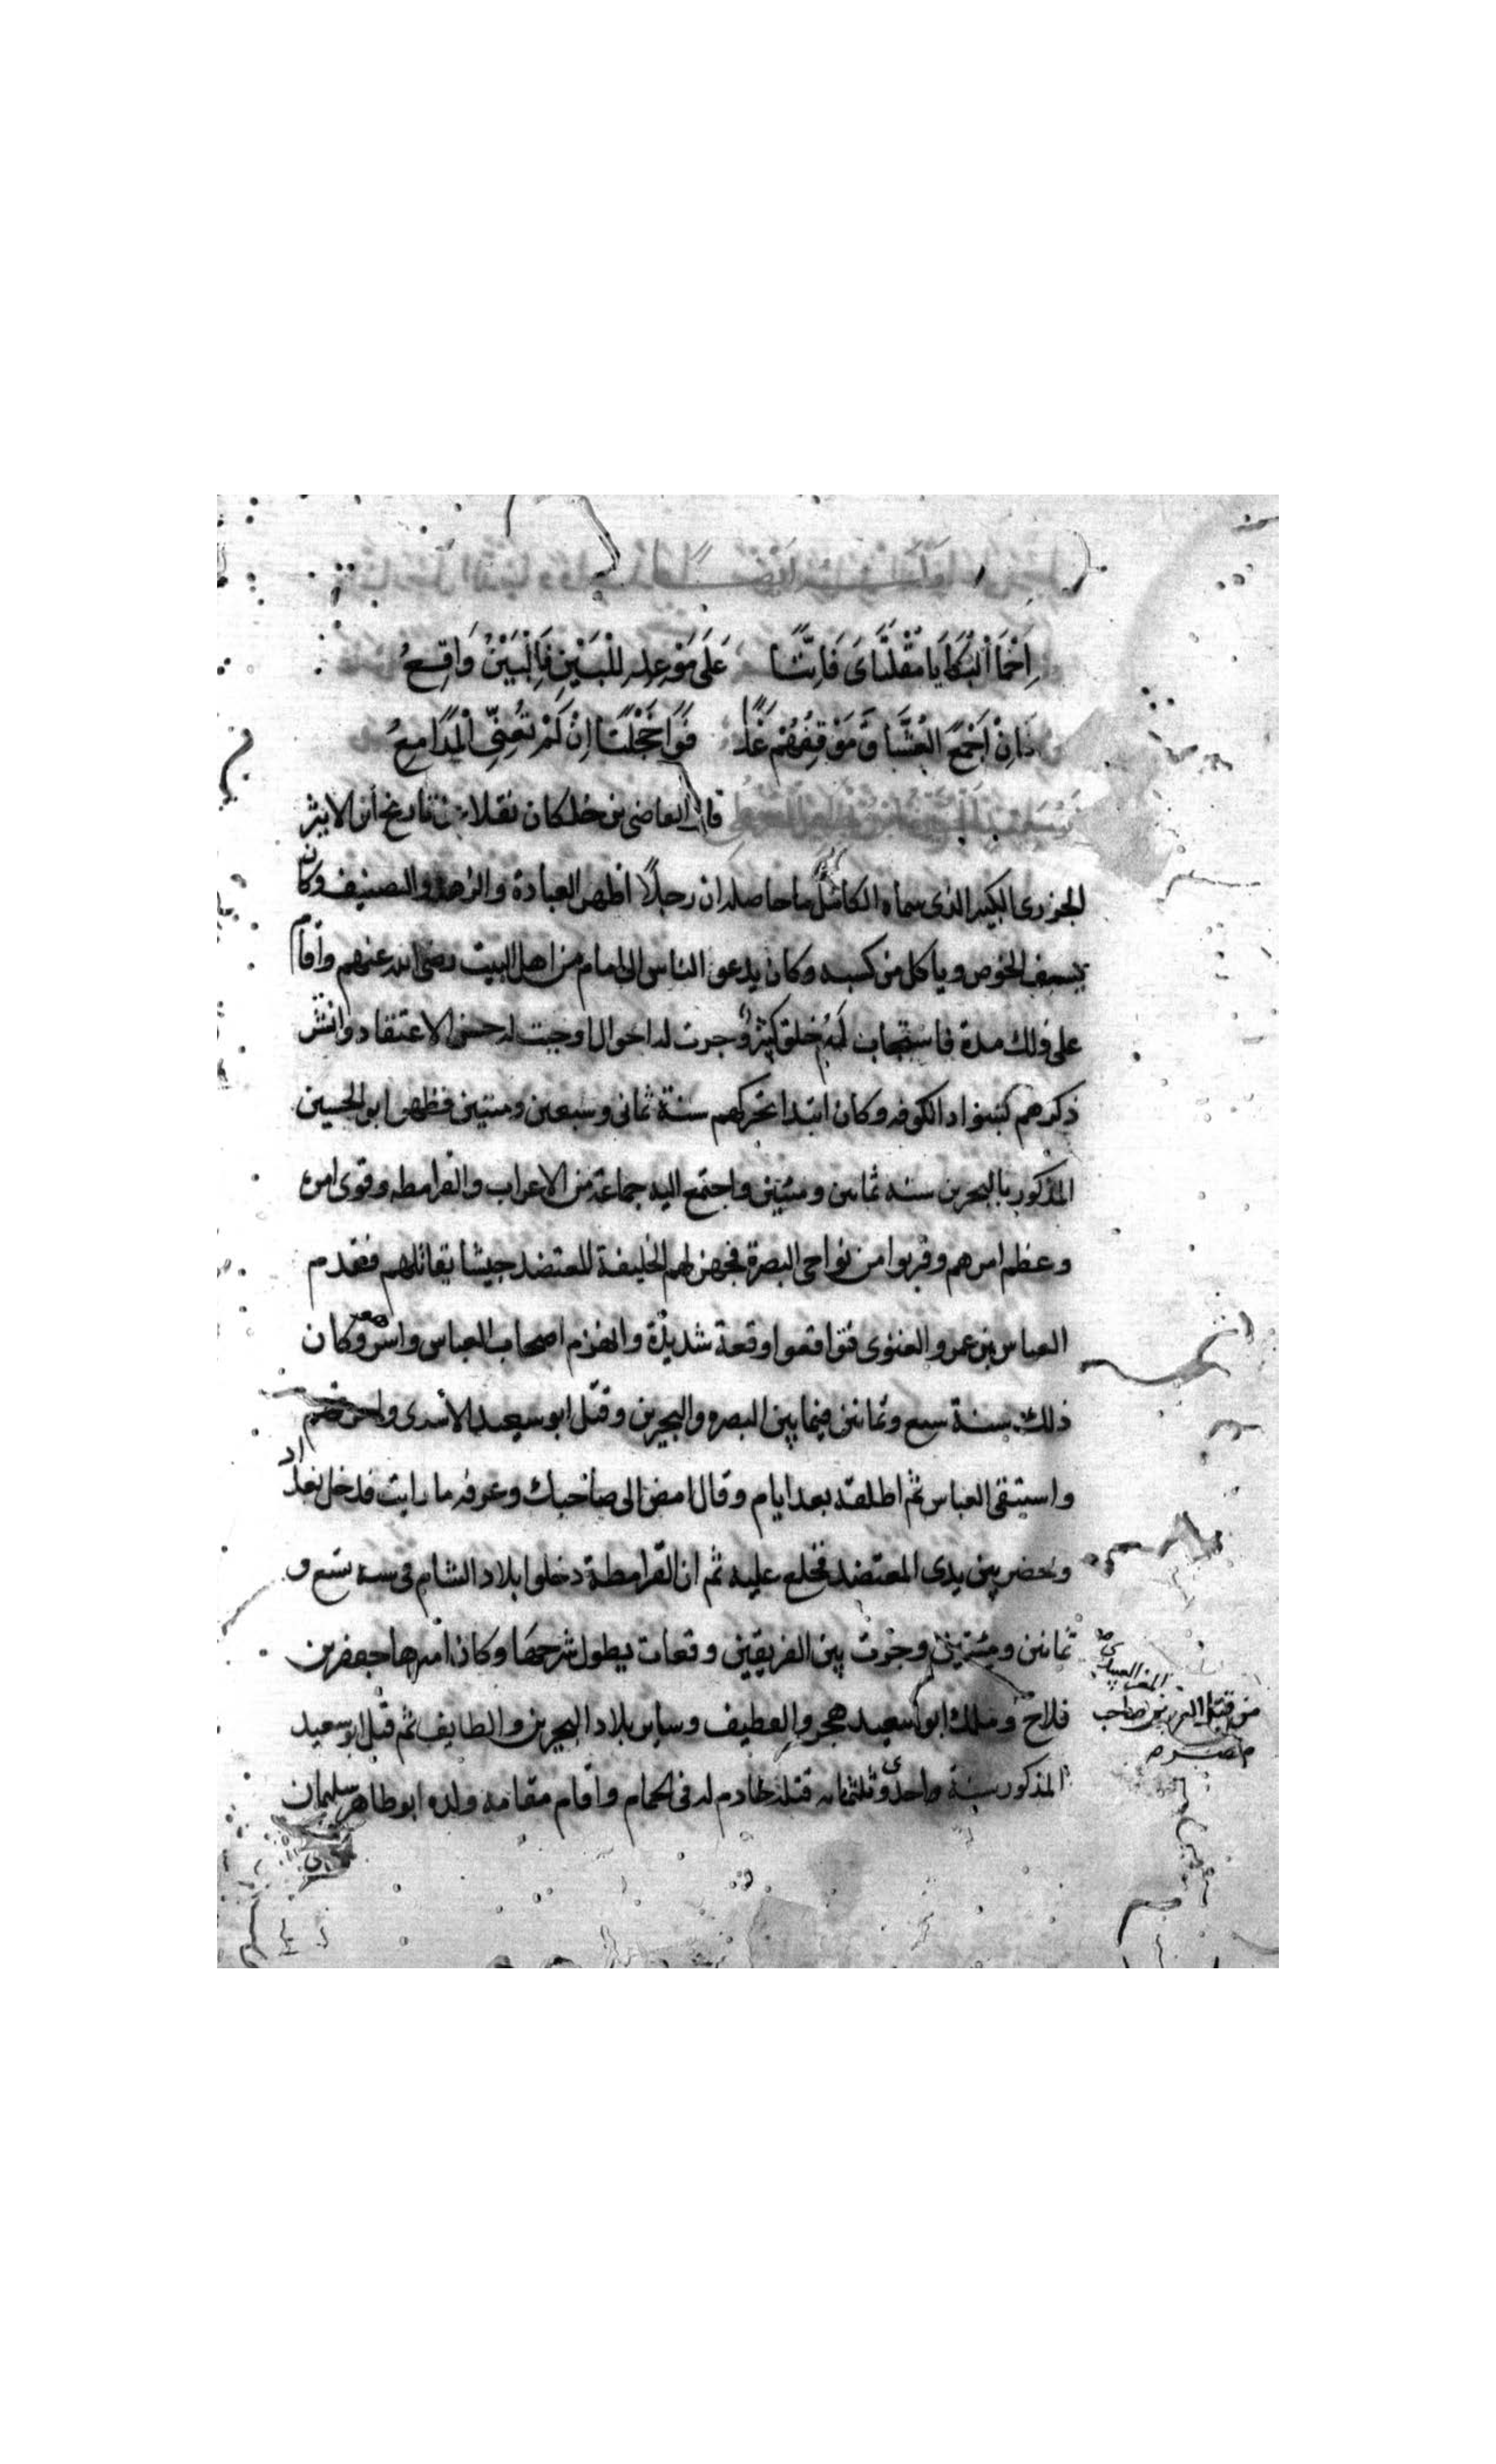 عَلَى مَوْعِدٍ لِلْبَيْنِ فَالْبَيْنُ وَاقِعُ
العُشَّاقَ مَوْقِفُهُمْ غَدًا فَوَا خَجْلَتَا اِنْ لَمْ تُعِنِّي الْمَدَامِعُ
قال القاضى بن خلكان نقلا من تاريخ ابن الاثير
الجزرى الكبير الذى سماه الكامل ما حاصله ان رجلًا اظهر العبادة والزهد وكان
الخوص وياكل من كسبه وكان يدعو الناس الى امام من اهل البيت رضى الله عنهم واقام
على ذلك مدة فاستجاب لَهُ خلق كثير وجرت له احوال اوجبت له حسن الاعتقاد وانتشر
ذكرهم بسواد الكوفه وكان ابتدا تحركهم سنة ثمانى وسبعين ومئتين فظهر ابو الحسين
المذكور بالبحرين سنه ثمانين ومئتين واجتمع اليه جماعة من الاعراب والقرامطه وقوى امره
وعظم امرهم وقربوا من نواحى البصرة فجهز لهم الخليفة المعتضد جيشا يقاتلهم فقدم
العباس بن عمرو الغنوى فتواقعوا وقعة شديدة وانهزم اصحاب العباس واسر وكان
ذلك سنة سبع وثمانين فيما بين البصره والبحرين وقتل ابو سعيد الاسرى
واستبقى العباس ثم اطلقه بعد ايام وقال امض الى صاحبك وعرفه ما رايت فدخل بغداد
وحضر بين يدى المعتضد فخلع عليه ثم ان القرامطة دخلوا بلاد الشام فى سنة تسع و
ثمانين ومئتين وجرت بين الفريقين وقعات يطول شرحها وكان اميرها جعفر بن
فلاح وملك ابو سعيد هجر والقطيف وساير بلاد البحرين والطايف ثم قتل ابو سعيد
المذكور سنة واحدى وثلثمائه قتله خادم له فى الحمام واقام مقامه ولده ابو طاهر سليمان
من قبل صاحب